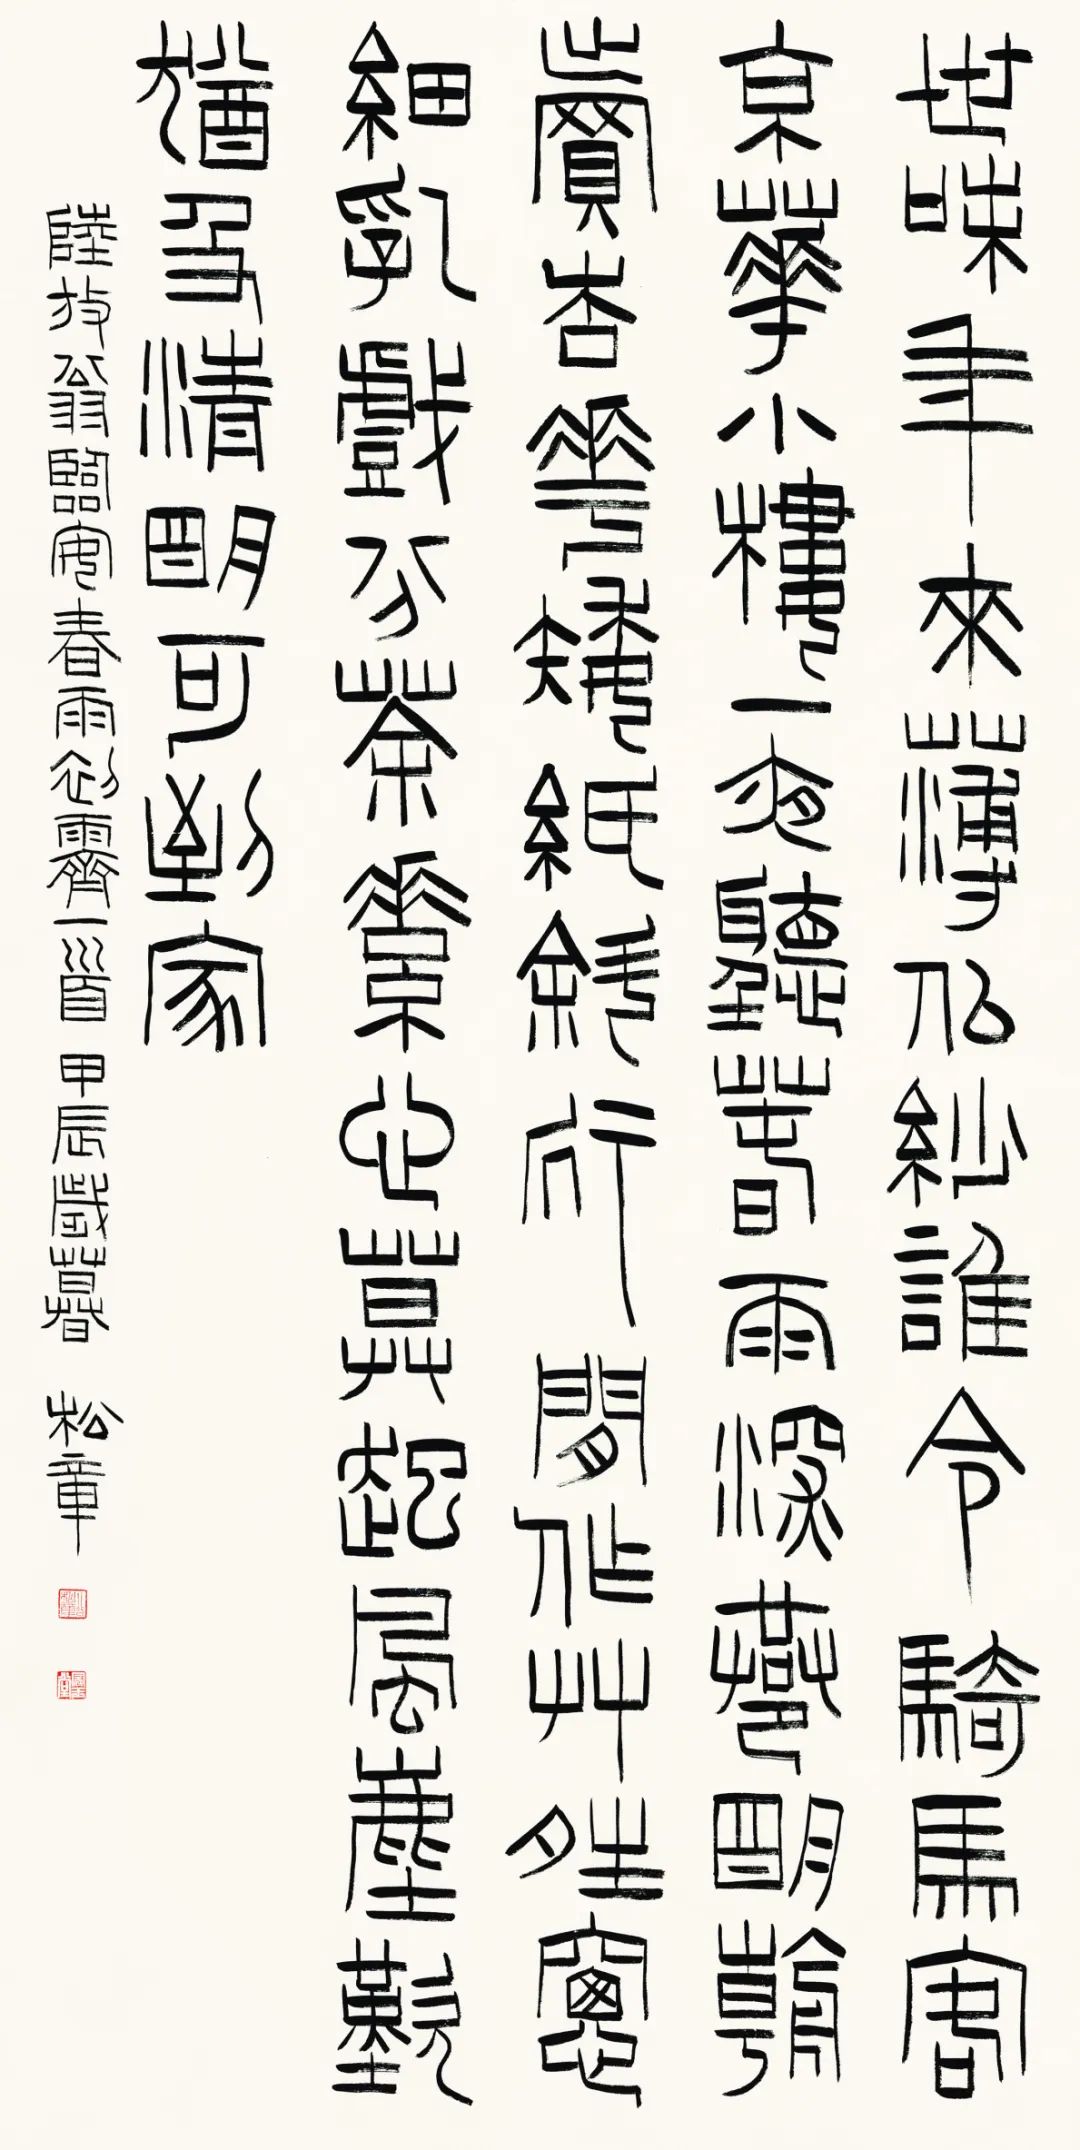 世味年來薄似紗誰令騎馬客
京華小樓一夜聽春雨深巷明朝
賣杏花矮紙斜行閒作草晴窗
細乳戲分茶素衣莫起風塵歎
猶及清明可到家
陸放翁臨安春雨初霽一首 甲辰歲暮 松章